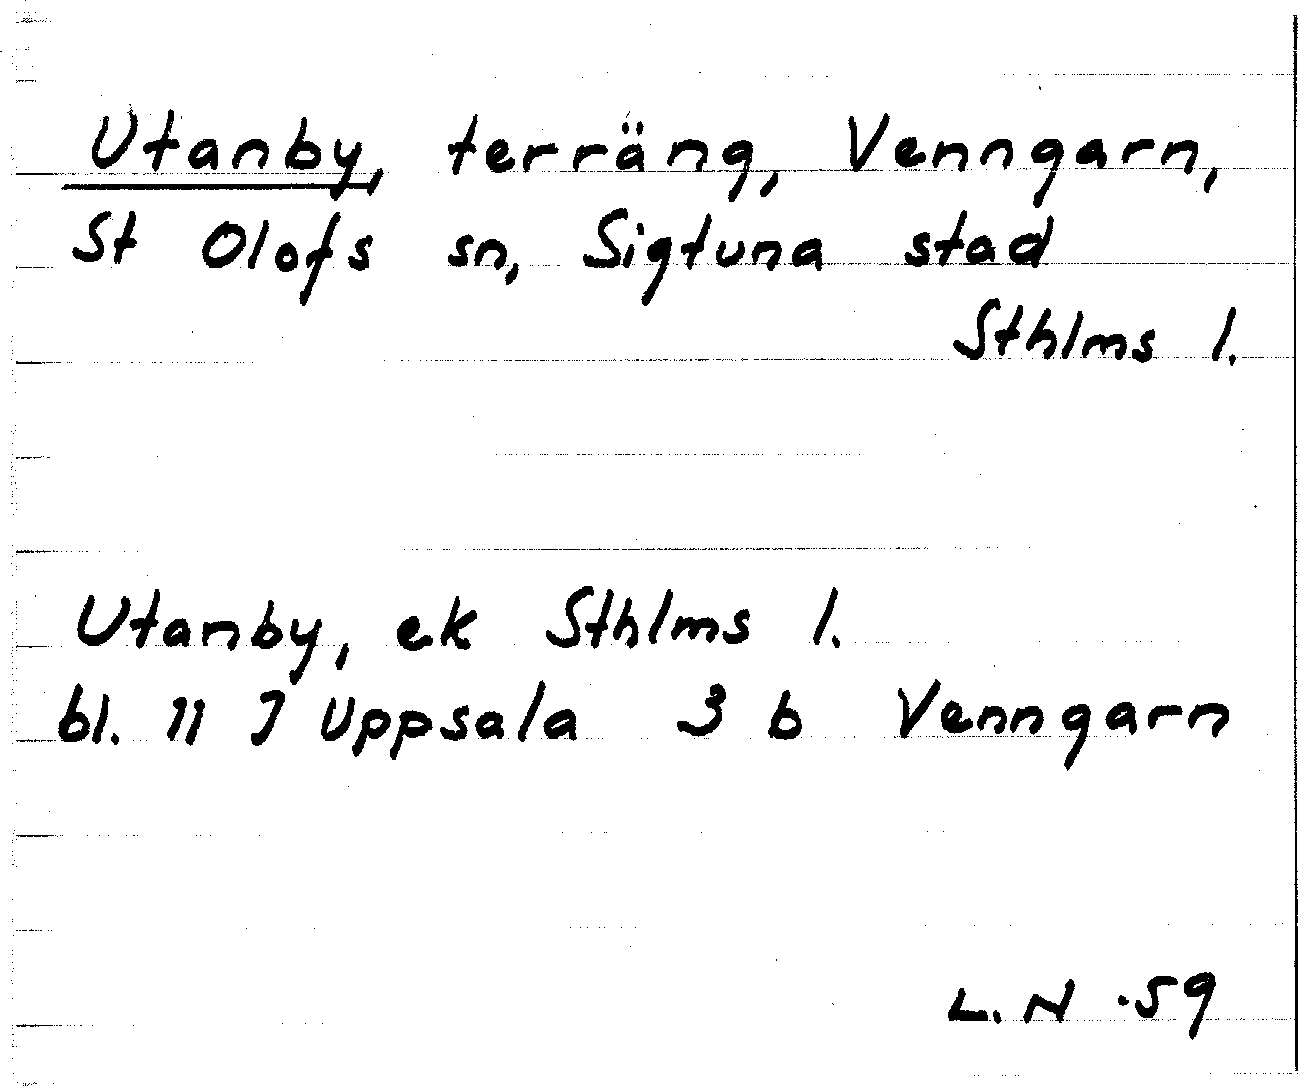 Utanby, terräng, Venngarn,
St Olofs sn, Sigtuna stad
Sthlms l.
Utanby, ek Sthlms l.
bl. 11 J Uppsala 3 b Venngarn
L. N .59